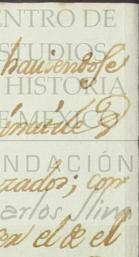 ENTRO DE
ESTUDIOS
haviendose
HISTORIA
E MEXICO
NDACIÓN
zados; con
arlos Slim
en el de el